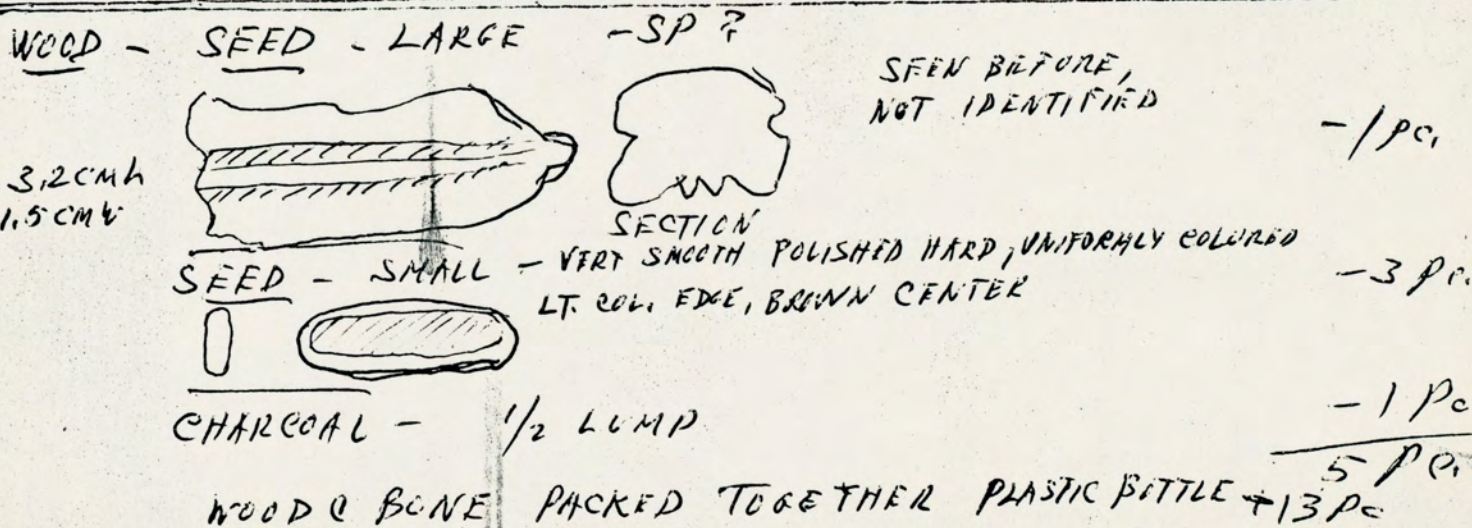 WOOD - SEED - LARGE - SP ?
SEEN BEFORE,
NOT IDENTIFIED
- 1 pc.
3.2 CM h
1.5 CM W
SECTION
SEED - SMALL - VERY SMOOTH POLISHED HARD, UNIFORMLY COLORED
LT. COL. EDGE, BROWN CENTER
- 3 pc.
CHARCOAL - 1/2 LUMP
- 1 Pc
5 Pc.
WOOD & BONE PACKED TOGETHER PLASTIC BOTTLE + 13 Pc